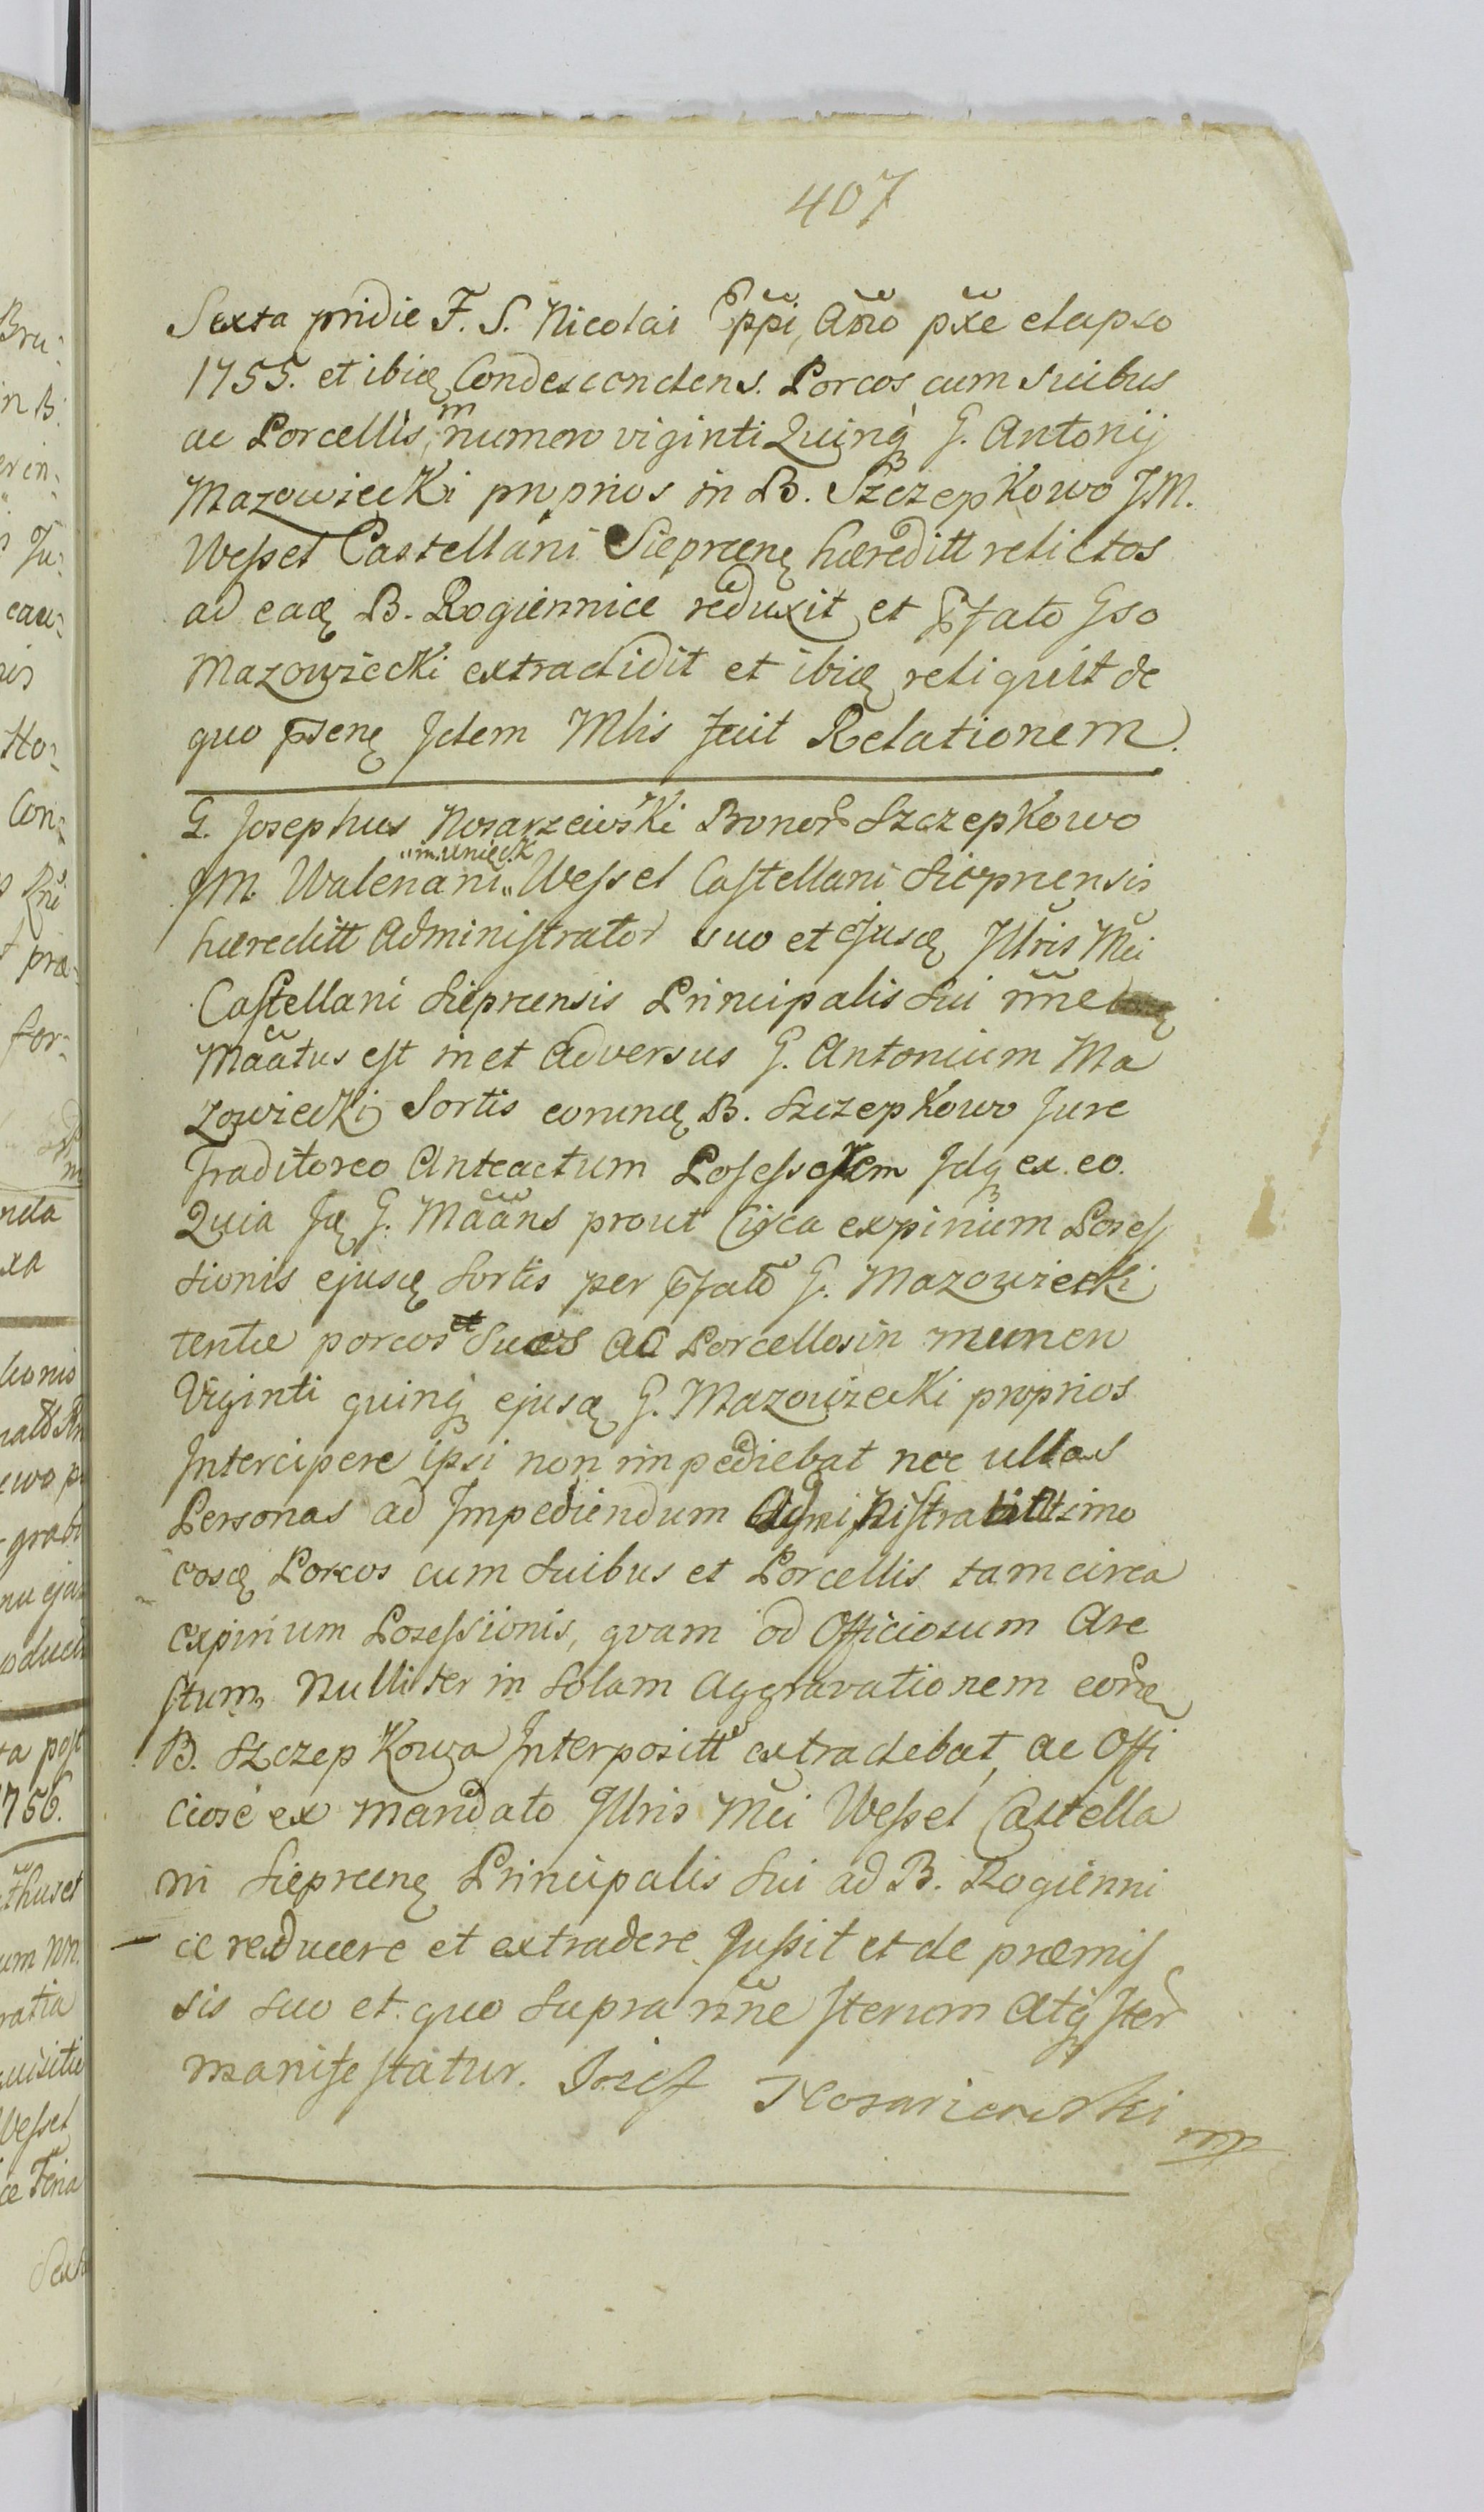 407
Sexta pridie F. S. Nicolai Eppi, Anno pxe elapso
1755. et ibidę Condescendens. Porcos cum suibus
ac Porcellis, in numero viginti Quinq G. Antonij
Mazowiecki proprios in B. Szczepkowo J.M.
Wessel Castellani Sieprcenę hæreditt relictos
ad eadę B. Rogiennice reduxit et Pfato Gso
Mazowiecki extradidit et ibidę reliquit de
quo psenę Jdem Mlis fecit Relationem.
G. Josephus Nosarzewski Bonor Szczepkowo
JM. Waleriani Wessel Castellani Sieprcensis
hæreditt Administrator suo et ejusdę Jllris Mci
Castellani Sieprcensis Principalis Sui nne
Maatus est in et Adversus G. Antonium Ma
zowiecki Sortis eorundę B. Szczepkowo Jure
Traditoreo Anteactum Possessorem Jdq ex eo.
Quia Jdę G. Maans prout Circa expirium Posses
sionis ejusdę Sortis per pfato G. Mazowiecki
tentæ porcos et Sues ac Porcellos in numero
Viginti quinq ejusdę G. Mazowiecki proprios
Intercipere ipsi non impediebat nec ullas
Personas ad Impediendum imo
eosdę Porcos cum Suibus et Porcellis tam circa
expirium Possessionis, quam ad Officiosum Are
stum, Nulliter in Solam Aggravationem eordę
B. Szczepkowa Interpositt extradebat, ac Offi
ciose ex mandato Jllris Mci Wessel Castella
ni Sieprcenę Principalis Sui ad B. Rogienni
ce reducere et extradere Jussit et de præmis
sis suo et quo Supra nne Iterum Atq Iter
manifestatur. Jozef Nosarzewski mp